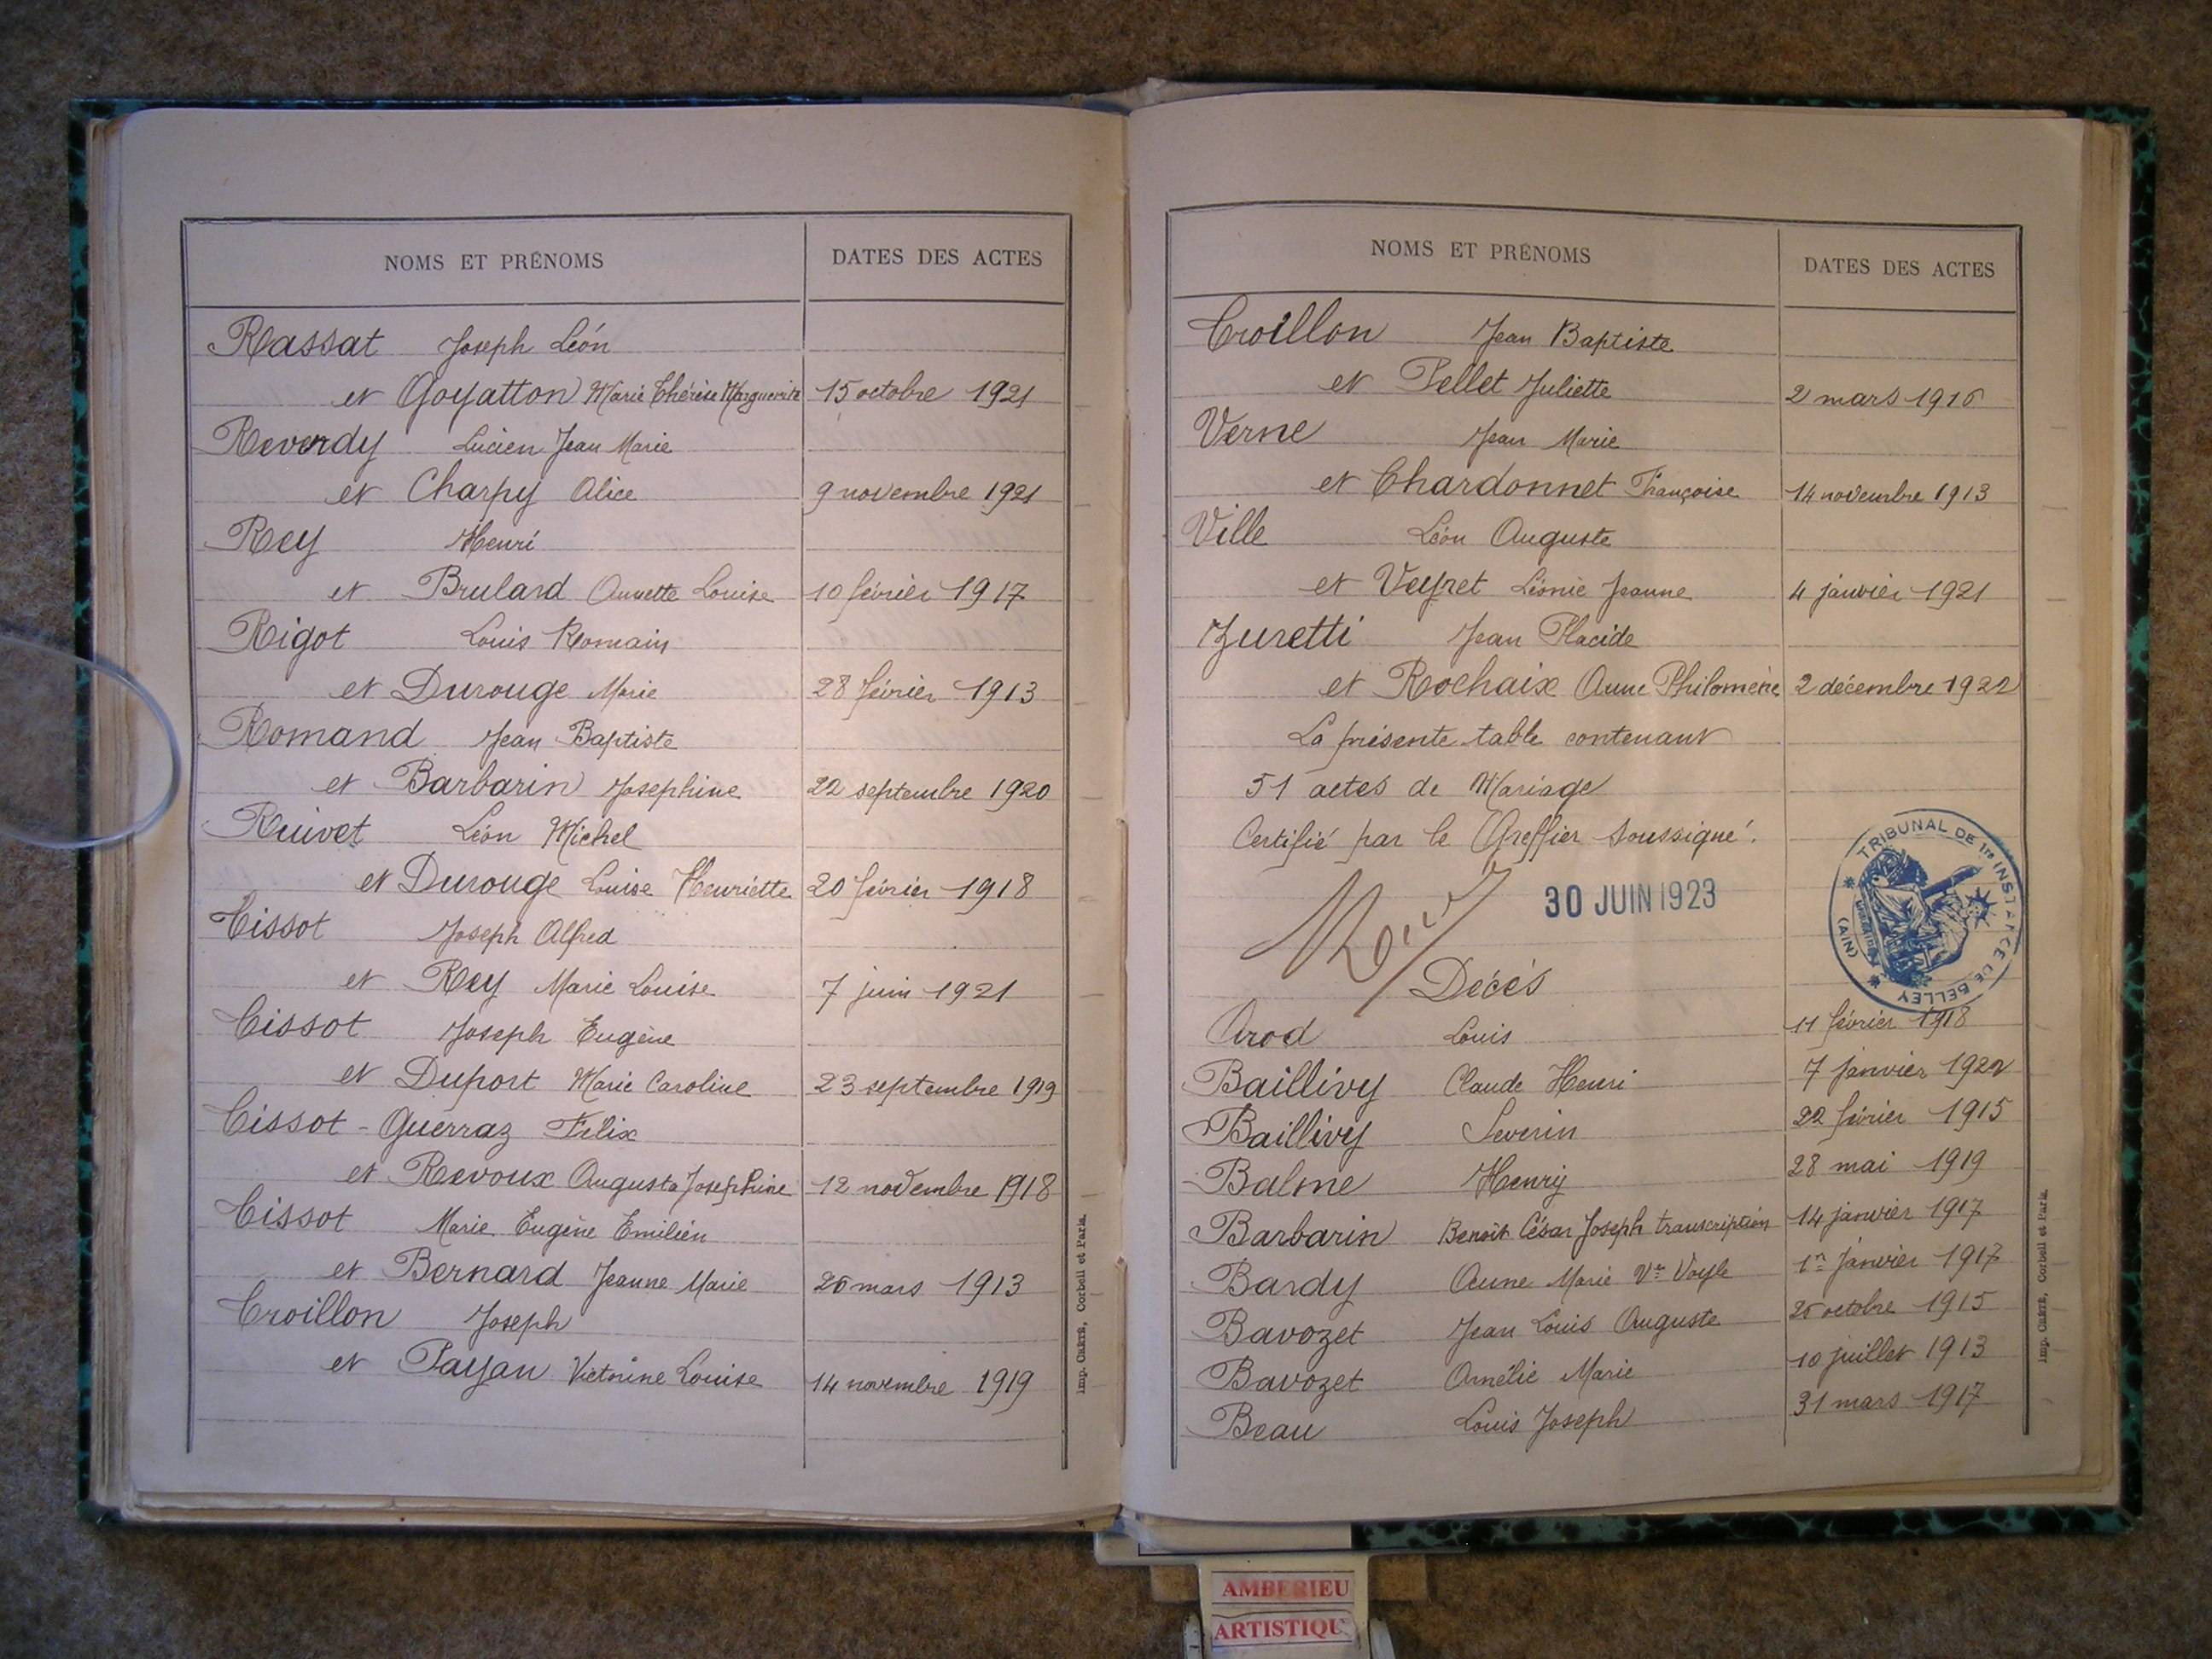 NOMS ET PRÉNOMS DATES DES ACTES
Rassat Joseph Léon
et Goyatton Marie Thérèse Marguerite 15 octobre 1921
Reverdy Lucien Jean Marie
et Charpy Alice 9 novembre 1921
Rey Henri
et Brulard Annette Louise 10 février 1917
Rigot Louis Romain
et Durouge Marie 28 février 1913
Romand Jean Baptiste
et Barbarin Josephine 22 septembre 1920
Ruivet Léon Michel
et Durouge Louise Henriette 20 février 1918
Tissot Joseph Alfred
et Rey Marie Louise 7 juin 1921
Tissot Joseph Eugène
et Duport Marie Caroline 23 septembre 1919
Tissot-Guerraz Félix
et Revoux Augusta Josephine 12 novembre 1918
Tissot Marie Eugène Emilien
et Bernard Jeanne Marie 26 mars 1913
Troillon Joseph
et Payan Victorine Louise 14 novembre 1919
Imp. CRÉTÉ, Corbeil et Paris.
NOMS ET PRÉNOMS DATES DES ACTES
Troillon Jean Baptiste
et Pellet Juliette 2 mars 1916
Verne Jean Marie
et Chardonnet Françoise 14 novembre 1913
Ville Léon Auguste
et Veyret Léonie Jeanne 4 janvier 1921
Zuretti Jean Placide
et Rochaix Anne Philomène 2 décembre 1922
La présente table contenant
51 actes de Mariage
Certifié par le Greffier soussigné.
30 JUIN 1923
TRIBUNAL DE 1re INSTANCE DE BELLEY
(AIN)
Décès
Arod Louis 11 février 1918
Baillivy Claude Henri 7 janvier 1922
Baillivy Severin 22 février 1915
Balme Henry 28 mai 1919
Barbarin Benoît César Joseph transcription 14 janvier 1917
Bardy Anne Marie Vve Vayle 1er janvier 1917
Bavozet Jean Louis Auguste 26 octobre 1915
Bavozet Amélie Marie 10 juillet 1913
Beau Louis Joseph 31 mars 1917
Imp. CRÉTÉ, Corbeil et Paris.
AMBERIEU
ARTISTIQU